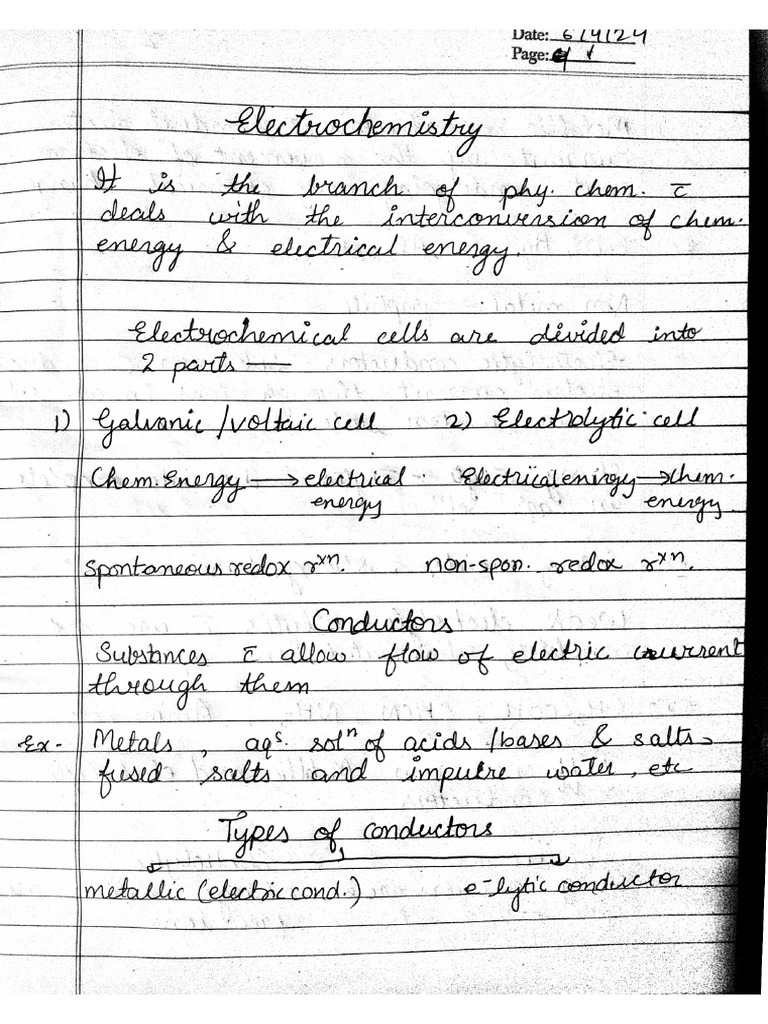 Date: 6/4/24
Page:
Electrochemistry
It is the branch of phy. chem. c̄
deals with the interconversion of chem.
energy & electrical energy.
Electrochemical cells are divided into
2 parts —
1) Galvanic /voltaic cell 2) Electrolytic cell
Chem. Energy → electrical energy Electrical energy → chem. energy.
Spontaneous redox rˣⁿ. non-spon. redox rˣⁿ.
Conductors
Substnces c̄ allow flow of electric current
through them
Ex - Metals, aqˢ. solⁿ of acids /bases & salts,
fused salts and impure water, etc
Types of conductors
metallic (electric cond.) e⁻lytic conductor